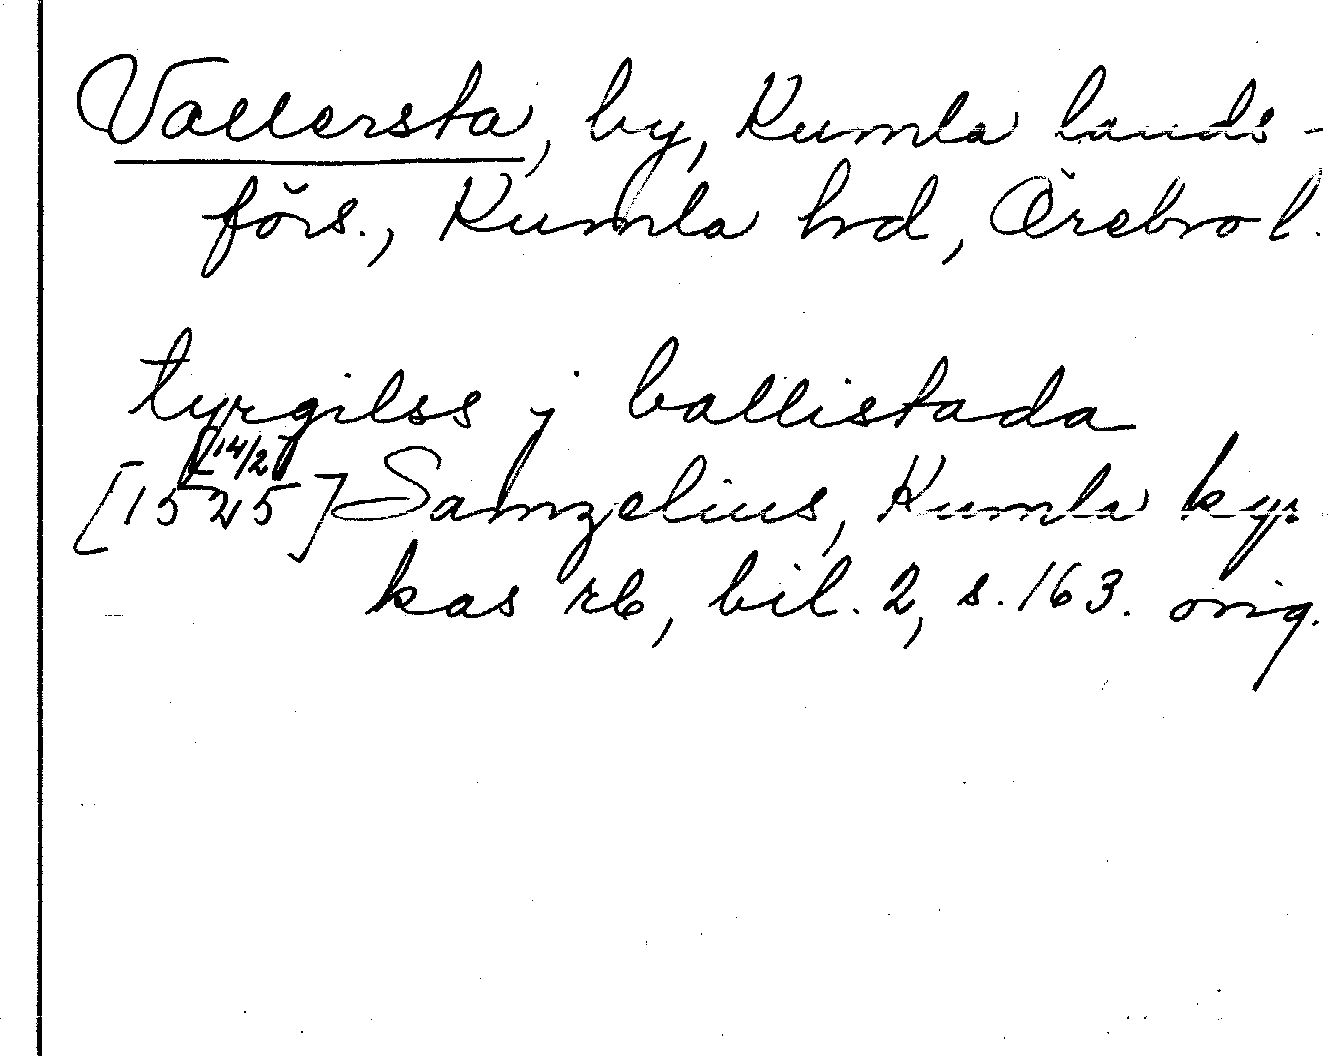 Vallersta, by, Kumla lands-
förs., Kumla hd, Örebro l.
tyrgilss j ballistada
[14/2]
[1525] Samzelius, Kumla kyr
kas rb, bil. 2, s. 163. orig.